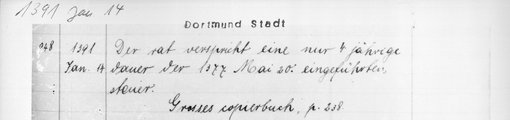 1391 Jan 14
Dortmund Stadt
248 1391 Der rat verspricht eine nur 4 jährige
Jan. 14 dauer der 1377 Mai 20. eingeführten
steuer.
Grosses copierbuch, p. 238